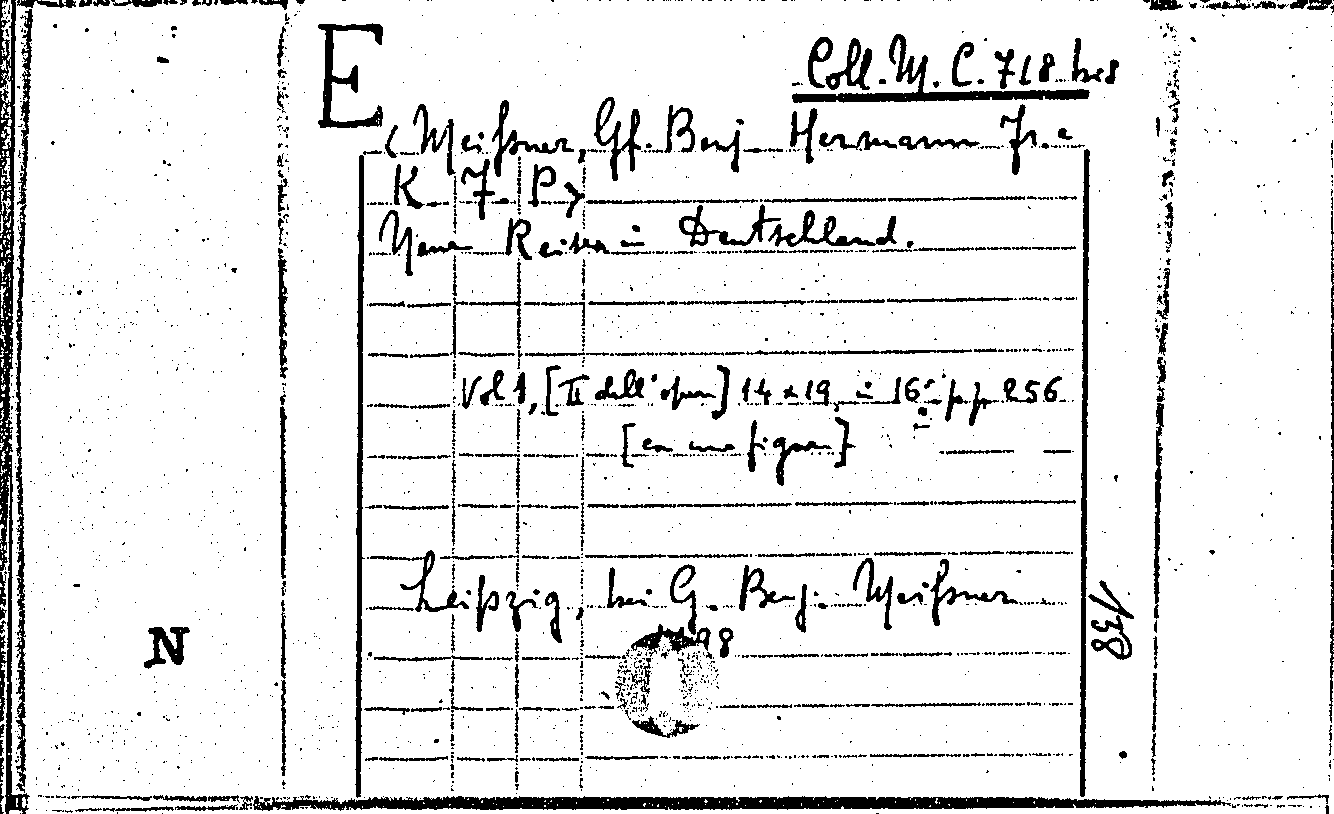 E
Coll. M. C. 718 bis
(Meißner, Gf. Benj. Hermann Fr. e
K. F. P>
Neue Reisen in Deutschland.
Vol 1, [II dell'opera] 14 x 19, in 16° pp 256
[con una figura]
Leipzig, bei G. Benj. Meißner
98
138
N